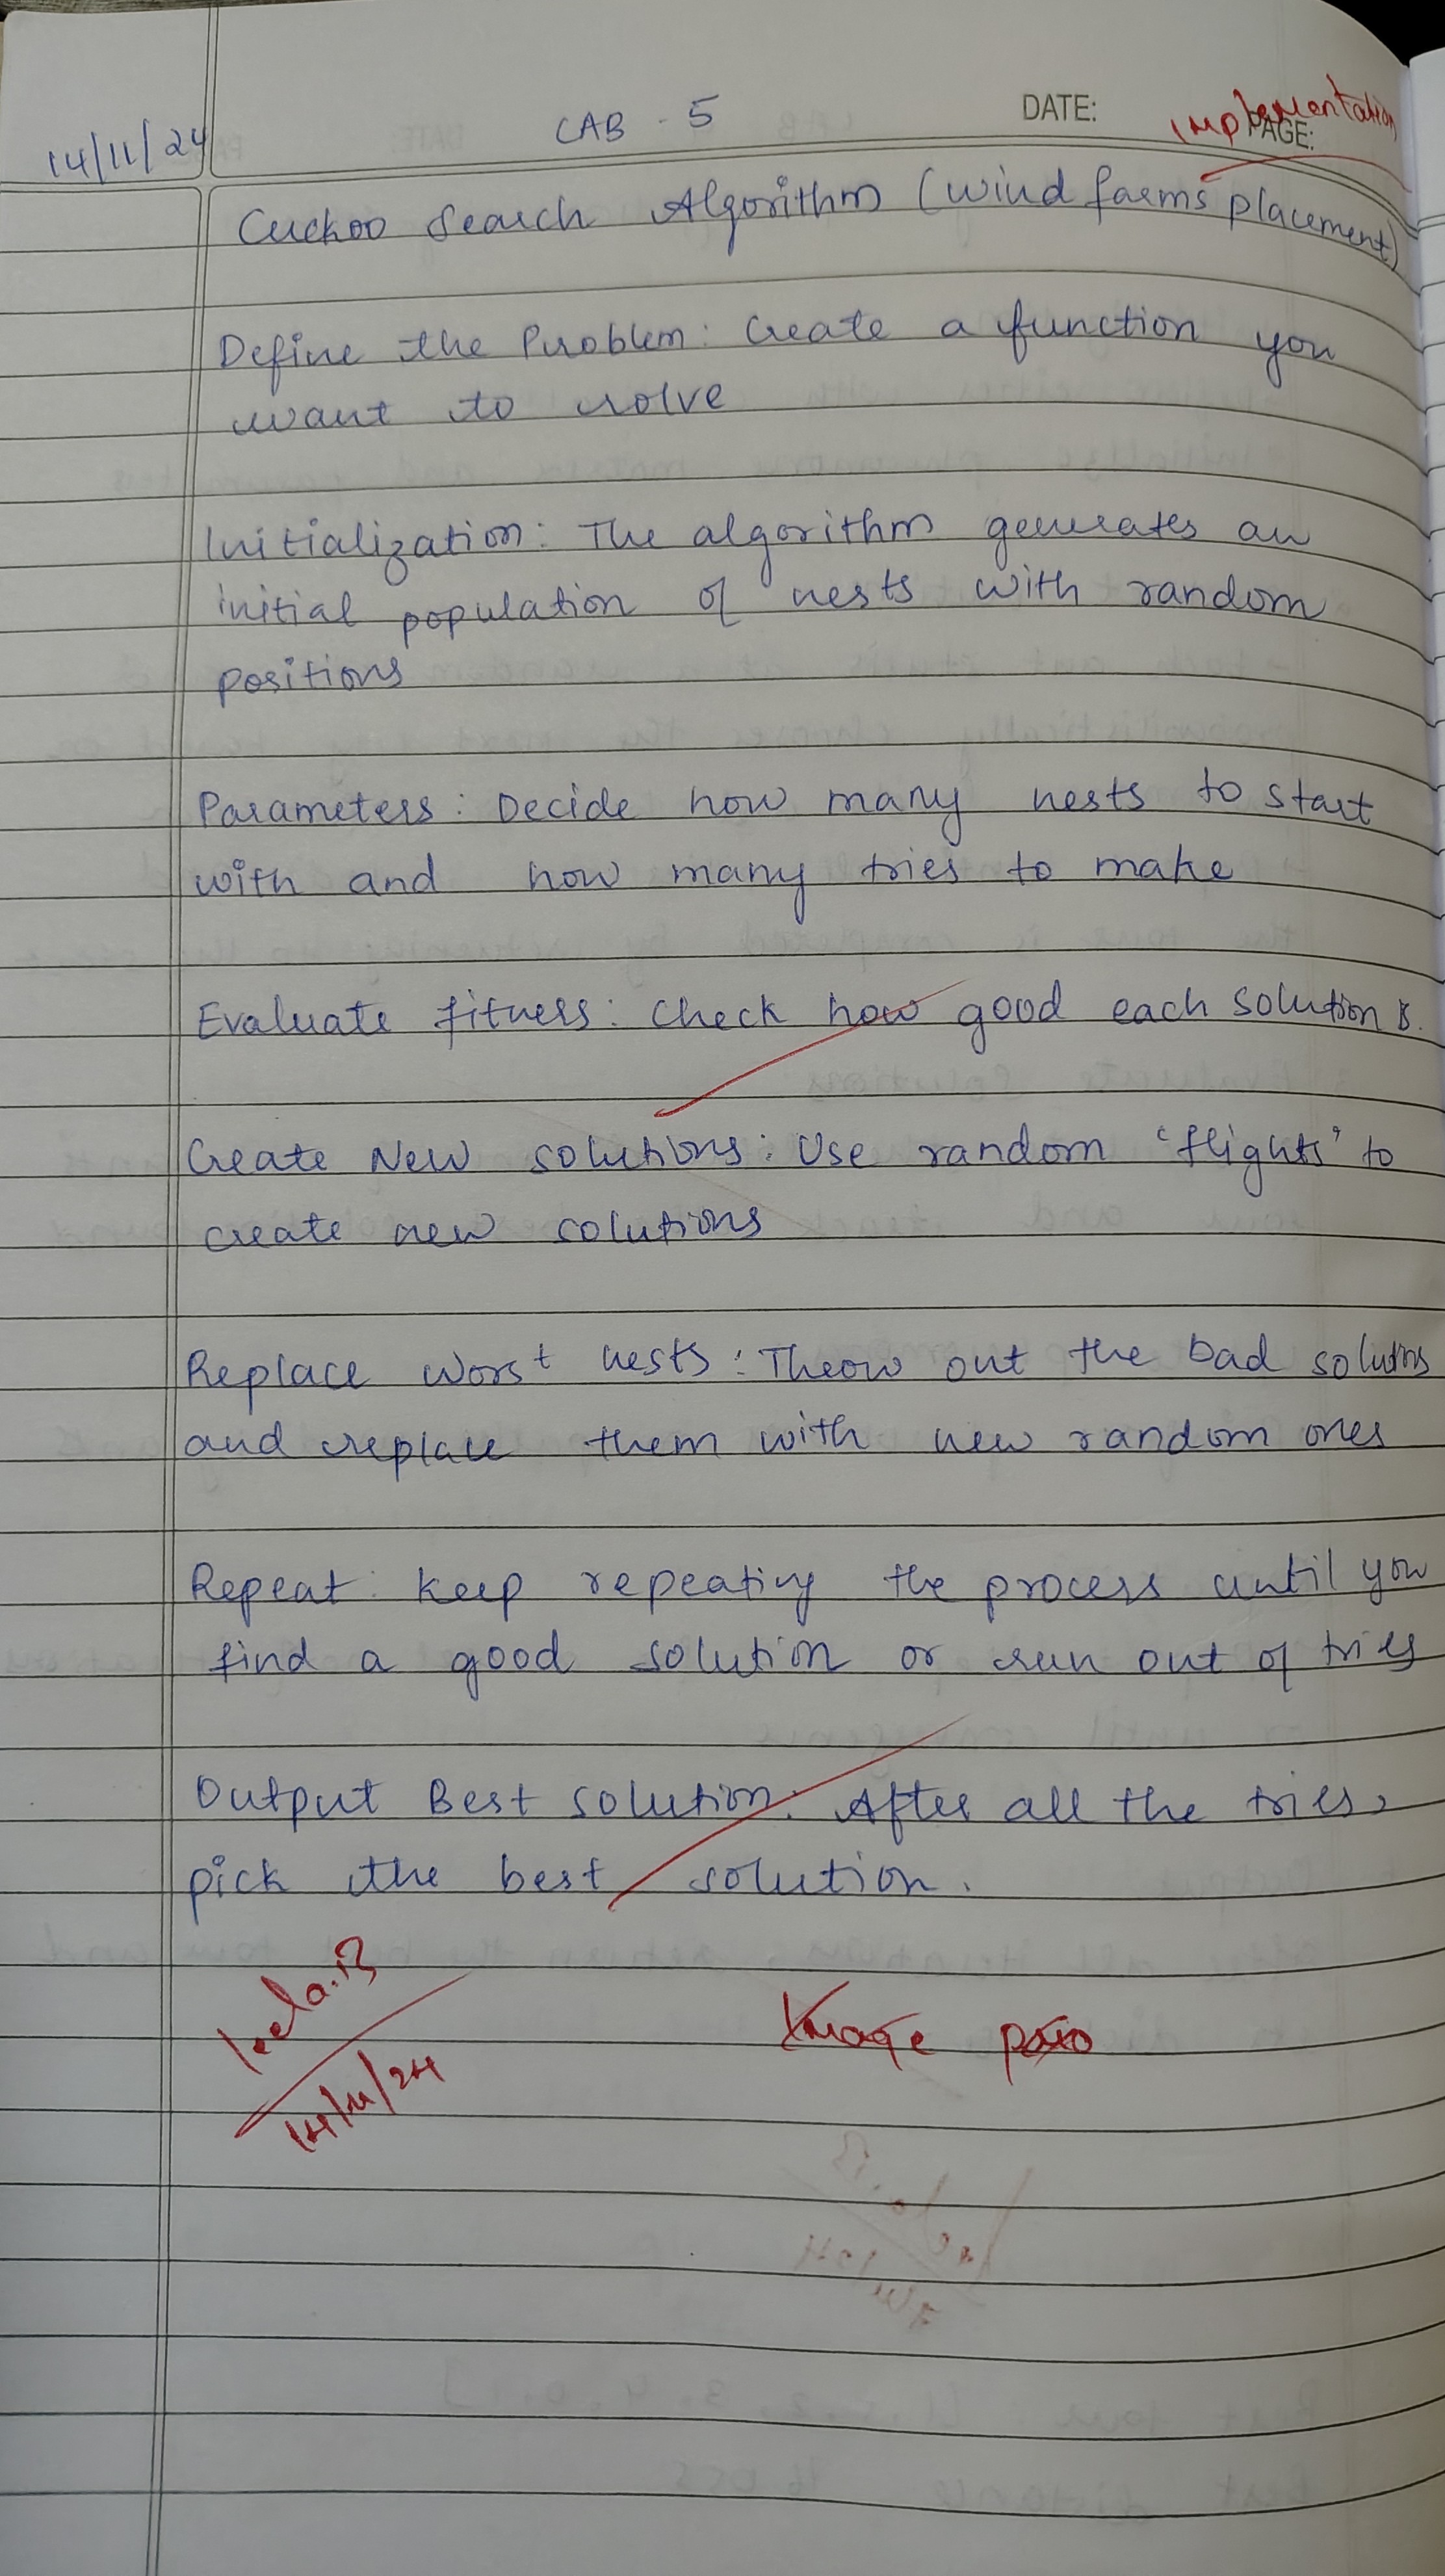 DATE:
Implementation
PAGE:
14/11/24
LAB - 5
Cuckoo Search Algorithm (wind farms placement)
Define the Problem: Create a function you
want to solve
Initialization: The algorithm generates an
initial population of nests with random
positions
Parameters: Decide how many nests to start
with and how many tries to make
Evaluate fitness: Check how good each solution is.
Create New solutions: Use random 'flights' to
create new solutions
Replace worst nests: Throw out the bad solutions
and replace them with new random ones
Repeat: Keep repeating the process until you
find a good solution or run out of tries
Output Best solution: After all the tries,
pick the best solution.
Image
14/11/24